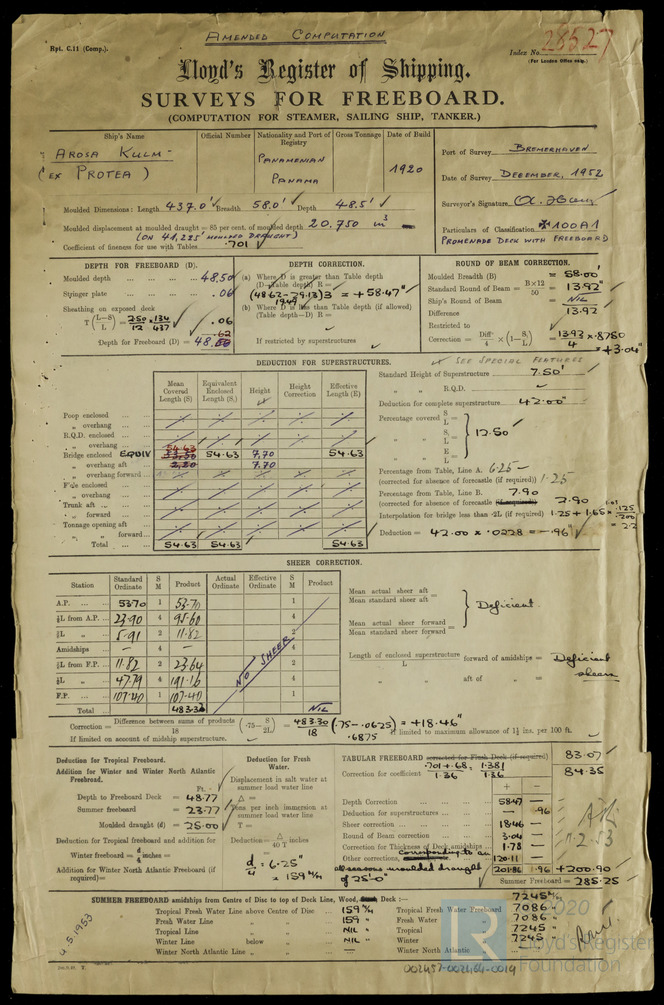 AMENDED COMPUTATION
Rpt. C.11 (Comp.).
Index No. 28527
(For London Office only.)
Lloyd's Register of Shipping.
SURVEYS FOR FREEBOARD.
(COMPUTATION FOR STEAMER, SAILING SHIP, TANKER.)
Ship's Name Official Number Nationality and Port of Registry Gross Tonnage Date of Build
AROSA KULM
(EX PROTEA)
PANAMENIAN
PANAMA
1920
Port of Survey BREMERHAVEN
Date of Survey DECEMBER, 1952
Surveyor's Signature
Particulars of Classification 100A1
PROMENADE DECK WITH FREEBOARD
Moulded Dimensions: Length 437.0' Breadth 58.0' Depth 48.5'
Moulded displacement at moulded draught = 85 per cent. of moulded depth 20.750 m3
(ON 41,225' MOULDED DRAUGHT)
Coefficient of fineness for use with Tables .701
DEPTH FOR FREEBOARD (D).
Moulded depth 48.50
Stringer plate .06
Sheathing on exposed deck
T (L-S / L) = 250/12 × 134/437 .06
.62
Depth for Freeboard (D) = 48.
DEPTH CORRECTION.
(a) Where D is greater than Table depth
(D-Table depth) R =
(48.62-29.13)3 = +58.47"
19.49
(b) Where D is less than Table depth (if allowed)
(Table depth-D) R =
If restricted by superstructures
ROUND OF BEAM CORRECTION.
Moulded Breadth (B) = 58.00'
Standard Round of Beam = B×12/50 = 13.92"
Ship's Round of Beam = NIL
Difference 13.92
Restricted to
Correction = Diff/4 × (1 - S₁/L) = 13.93 × .8750 / 4 = +3.04"
DEDUCTION FOR SUPERSTRUCTURES.
Mean Covered Length (S) Equivalent Enclosed Length (S₁) Height Height Correction Effective Length (E)
Poop enclosed
„ overhang
R.Q.D. enclosed
„ overhang
Bridge enclosed EQUIV 54.63 54.63 7.70 54.63
„ overhang aft 2.20 7.70
„ overhang forward
F'cle enclosed
„ overhang
Trunk aft
„ forward
Tonnage opening aft
„ „ forward
Total 54.63 54.63 54.63
SEE SPECIAL FEATURES
Standard Height of Superstructure 7.50'
„ „ R.Q.D.
Deduction for complete superstructure 42.00"
Percentage covered S/L =
„ „ S₁/L = 12.50
„ „ E/L =
Percentage from Table, Line A. 6.25
(corrected for absence of forecastle (if required)) 1.25
Percentage from Table, Line B. 7.90
(corrected for absence of forecastle (if required)) 2.90
Interpolation for bridge less than .2L (if required) 1.25 + 1.65 × .125/.200 = 2.2
Deduction = 42.00 × .0228 = -.96
SHEER CORRECTION.
Station Standard Ordinate S M Product Actual Ordinate Effective Ordinate S M Product
A.P. 53.70 1 53.70 1
⅙L from A.P. 23.90 4 95.60 4
⅓L „ 5.91 2 11.82 2
Amidships — 4 — 4
⅓L from F.P. 11.82 2 23.64 2
⅙L „ 47.79 4 191.16 4
F.P. 107.40 1 107.40 1
Total 483.32 NIL
NO SHEER
Mean actual sheer aft
Mean standard sheer aft =
Mean actual sheer forward
Mean standard sheer forward =
Deficient
Length of enclosed superstructure / L forward of amidships = Deficient
„ „ aft of „ = sheer
Correction = Difference between sums of products / 18 (.75 - S/2L) = 483.30/18 (.75-.0625) = +18.46"
.6875
If limited on account of midship superstructure.
If limited to maximum allowance of 1½ ins. per 100 ft.
Deduction for Tropical Freeboard.
Addition for Winter and Winter North Atlantic Freeboard.
Ft.
Depth to Freeboard Deck = 48.77
Summer freeboard = 23.77
Moulded draught (d) = 25.00
Deduction for Tropical freeboard and addition for
Winter freeboard = d/4 inches =
Addition for Winter North Atlantic Freeboard (if required) =
Deduction for Fresh Water.
Displacement in salt water at summer load water line
Δ =
Tons per inch immersion at summer load water line
T =
Deduction = Δ/40 T inches
d/4 = 6.25"
= 159 m/m
TABULAR FREEBOARD corrected for Flush Deck (if required) 83.07
Correction for coefficient .701+.68 / 1.36 1.381 / 1.36 84.35
+ -
Depth Correction 58.47 —
Deduction for superstructures — .96
Sheer correction 18.46 —
Round of Beam correction 3.04 —
Correction for Thickness of Deck amidships 1.78 —
Other corrections, corresponding to an 120.11 —
moulded draught of 25'-0" 201.86 1.96 +200.90
Summer Freeboard = 285.25
7.2.53
SUMMER FREEBOARD amidships from Centre of Disc to top of Deck Line, Wood, Deck :— 7245 m/m
Tropical Fresh Water Line above Centre of Disc 159 m/m Tropical Fresh Water Freeboard 7086 „
Fresh Water Line „ „ 159 „ Fresh Water „ 7086 „
Tropical Line „ „ NIL „ Tropical „ 7245 „
Winter Line below „ NIL „ Winter „ 7245 „
Winter North Atlantic Line „ „ — Winter North Atlantic „ —
4.5.1953
002457-002464-0014
LR
© 2020
Lloyd's Register
Foundation